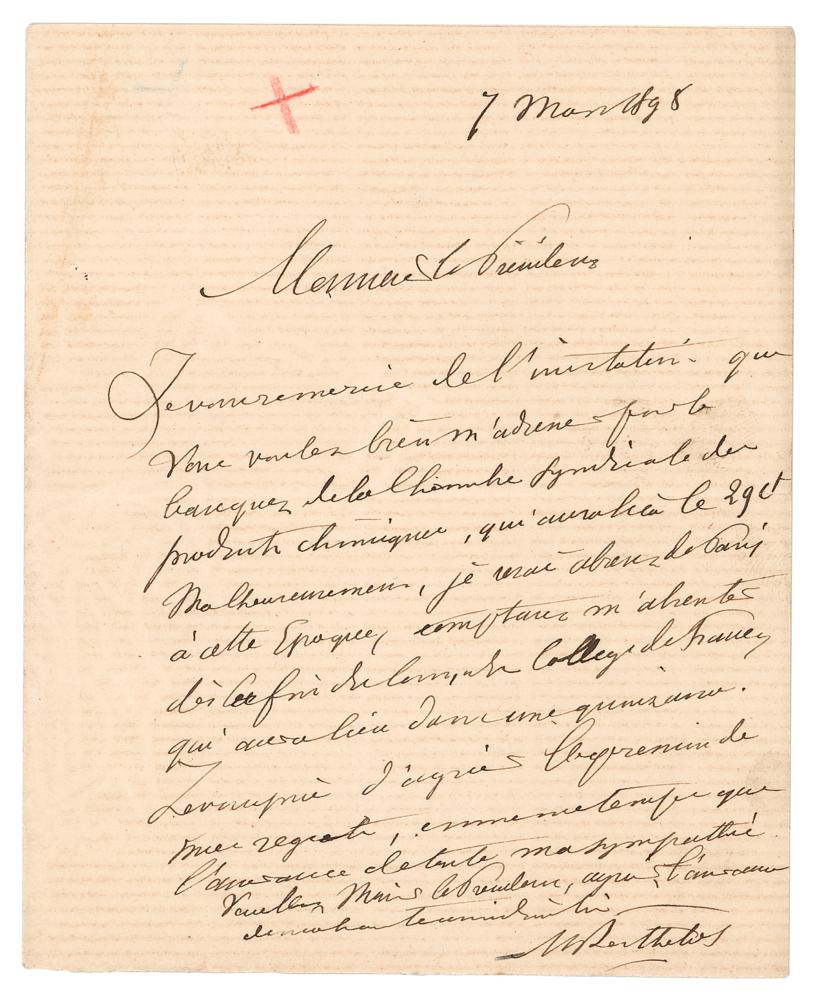 7 Mars 1898
Monsieur le Président
Je vous remercie de l'invitation que
vous voulez bien m'adresser pour le
banquet de la Chambre syndicale des
produits chimiques, qui aura lieu le 29 ct
Malheureusement, je serai absent de Paris
à cette Epoque, comptant m'absenter
dès la fin du cours du Collège de France,
qui aura lieu dans une quinzaine.
Je vous prie d'agréer l'expression de
mes regrets, en même temps que
l'assurance de toute ma sympathie
Veuillez, Monsieur le Président, agréer l'assurance
de ma haute considération
M Berthelot